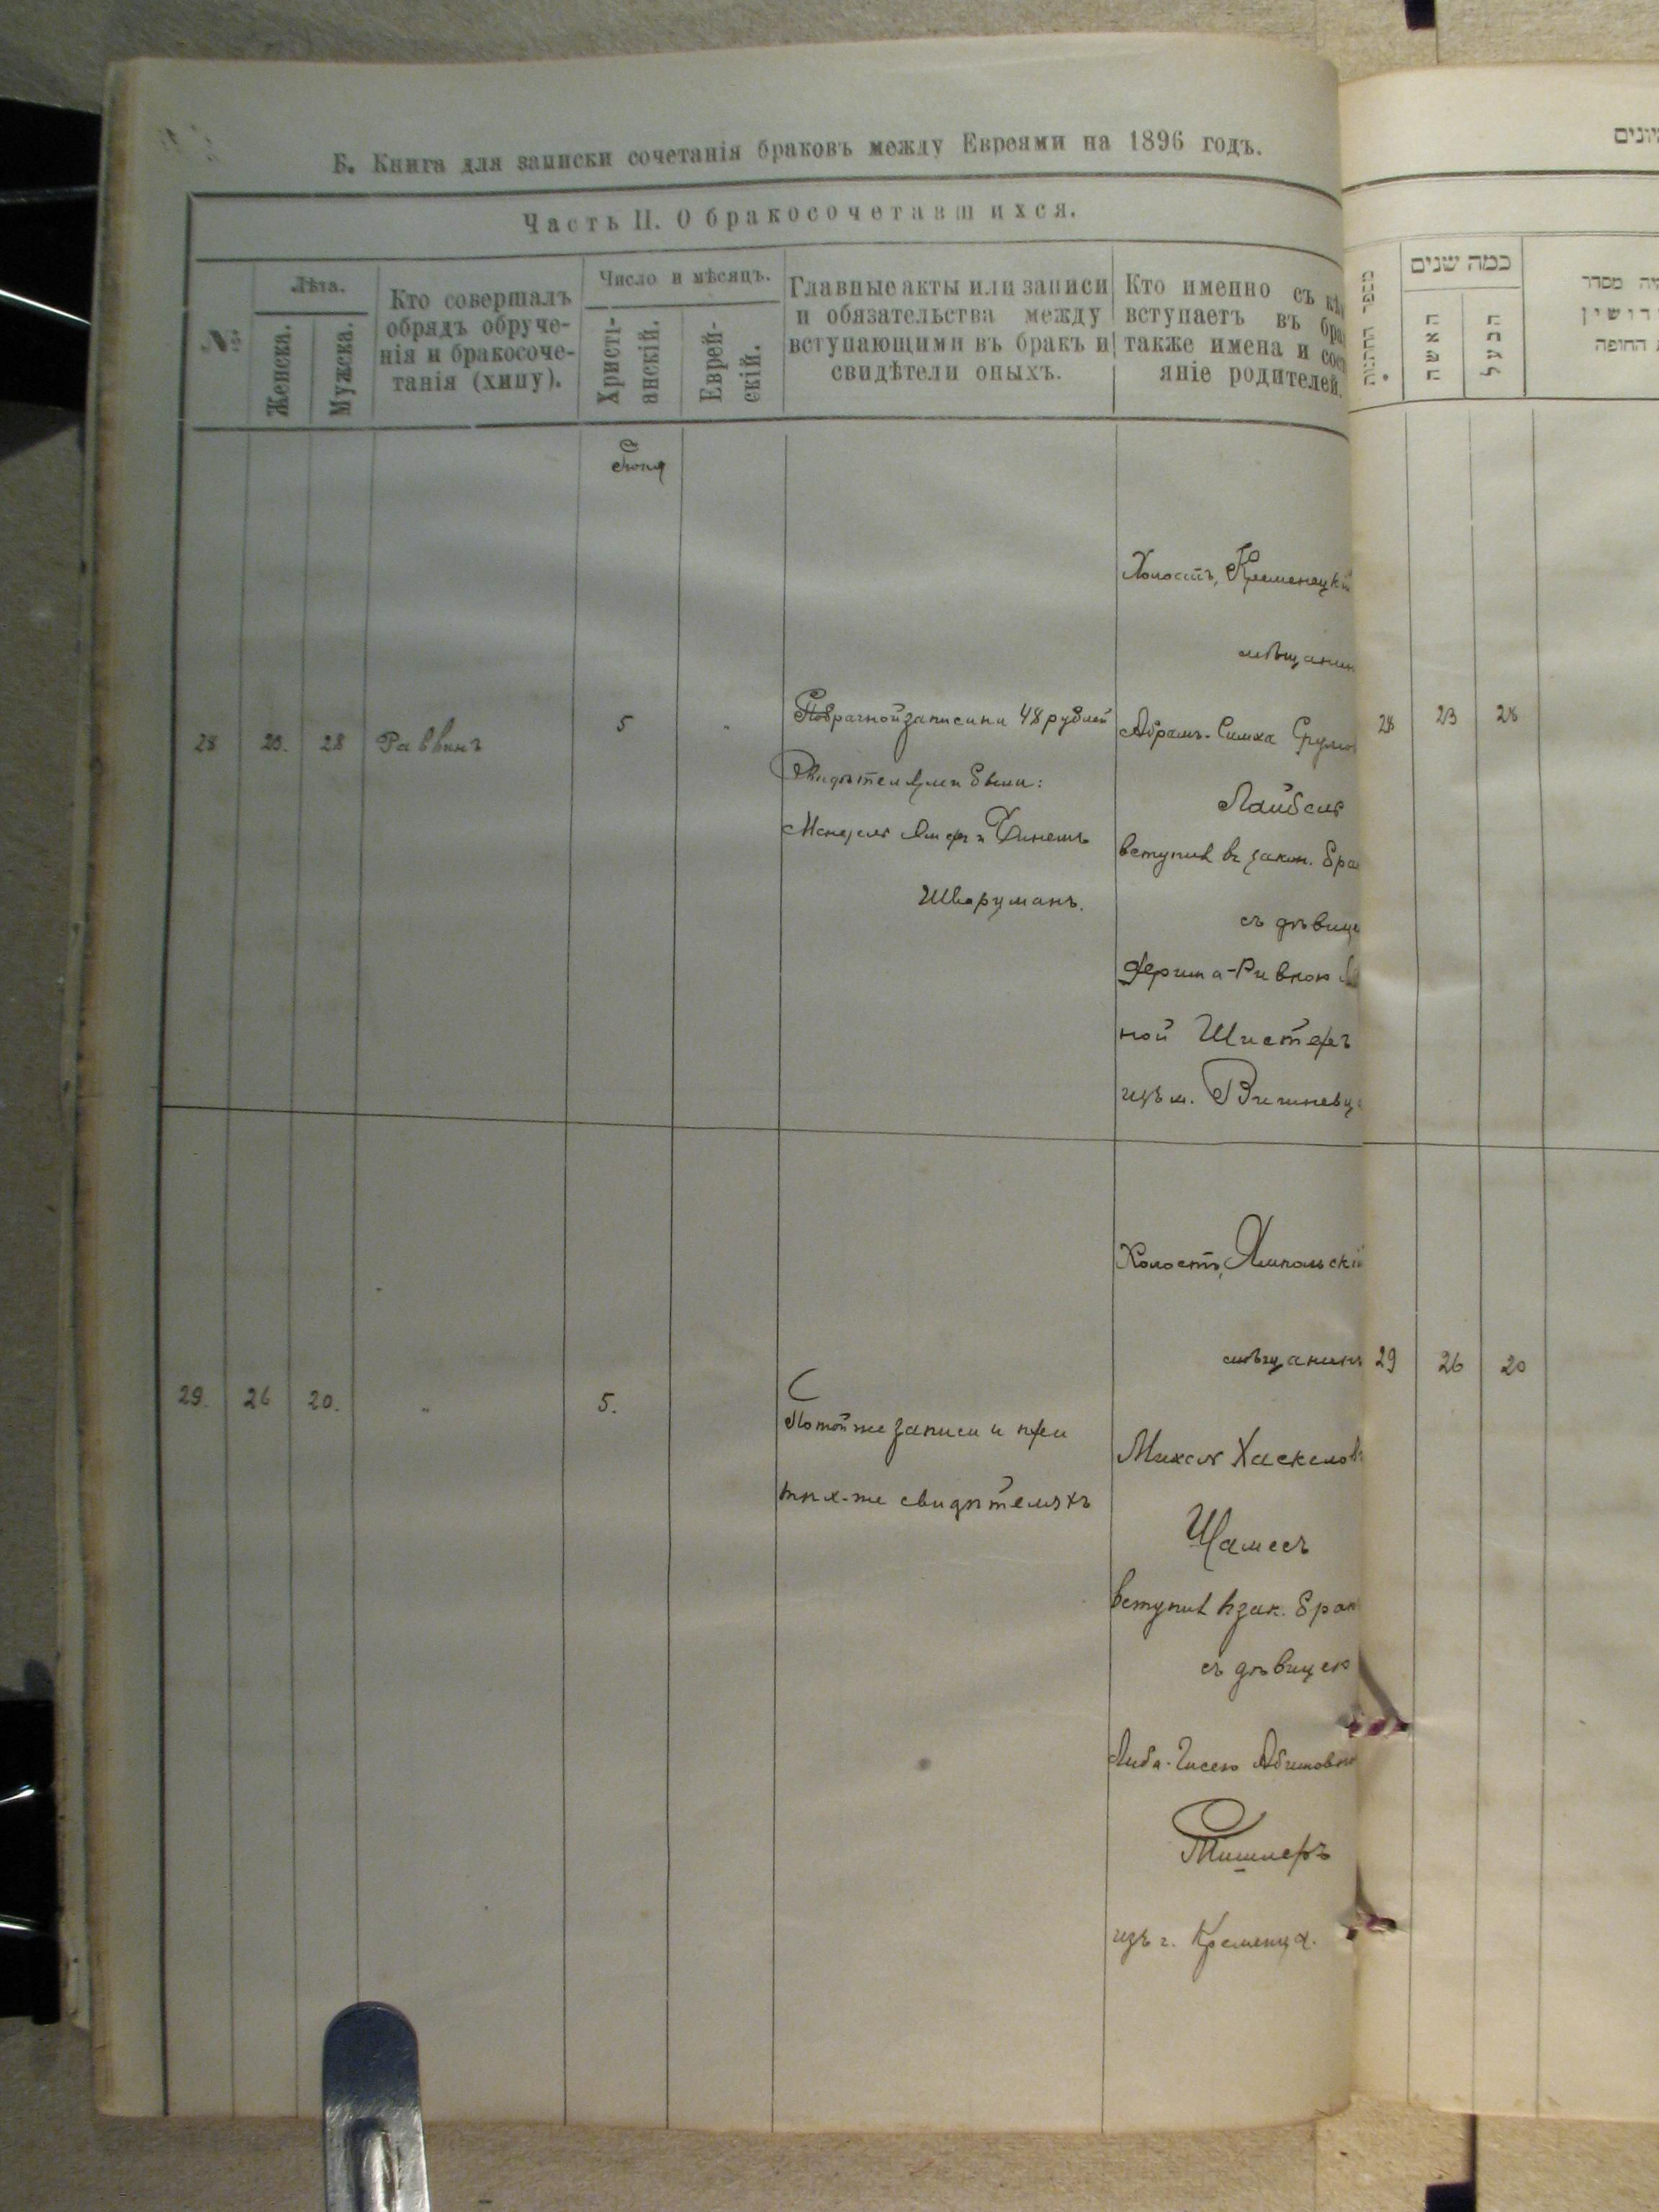 Б. Книга для записки сочетанія браковъ между Евреями на 1896 годъ.
Часть II. О бракосочетавшихся.
№
Лѣта.
Женска.
Мужска.
Кто совершалъ
обрядъ обруче-
нія и бракосоче-
танія (хипу).
Число и мѣсяцъ.
Христі-
анскій.
Еврей-
скій.
Главные акты или записи
и обязательства между
вступающими въ бракъ и
свидѣтели оныхъ.
Кто именно съ кѣ
вступаетъ въ бра
также имена и сос
яніе родителей.
28 23. 28 Раввинъ 5
По брачной записи на 48 рублей
Свидѣтелями были:
Мендель
Шварцманъ.
Холостъ, Кременецкій
мѣщанин
Абрамъ-Симха Срулов
Лайбель
вступилъ въ закон. бра
съ дѣвице
ной Шистеръ
изъ м. Вишневца
29. 26 20. „ 5.
По той же записи и при
тѣх-же свидѣтеляхъ
Холостъ, Ямпольскій
мѣщанинъ
Михель Хаскелов
Шамесъ
вступилъ в зак. бракъ
съ дѣвицею
Либа-Гисею Абрамовно
Тишлеръ
изъ г. Кременца.
יונים
מספר החתנות
כמה שנים
האשה
הבעל
יה מסדר
דושין
החופה
28 23 28
29 26 20